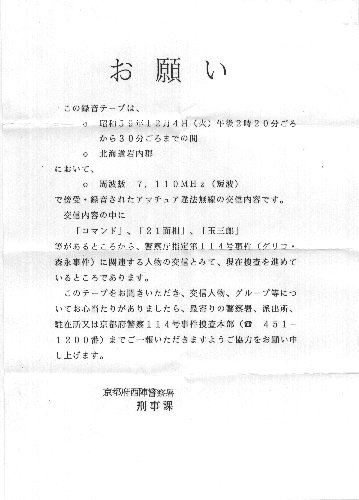 お願い
この録音テープは、
o 昭和59年12月4日(火)午後2時20分ごろ
から30分ごろまでの間
o 北海道岩内郡
において、
o 周波数 7,110MHz(短波)
で傍受・録音されたアマチュア違法無線の交信内容です。
交信内容の中に
「コマンド」、「21面相」、「玉三郎」
等があるところから、警察庁指定第114号事件(グリコ・
森永事件)に関連する人物の交信とみて、現在捜査を進めて
いるところであります。
このテープをお聞きいただき、交信人物、グループ等につ
いてお心当たりがありましたら、最寄りの警察署、派出所、
駐在所又は京都府警察114号事件捜査本部(☎ 451-
1200番)までご一報いただきますようご協力をお願い申
し上げます。
京都府西陣警察署
刑事課